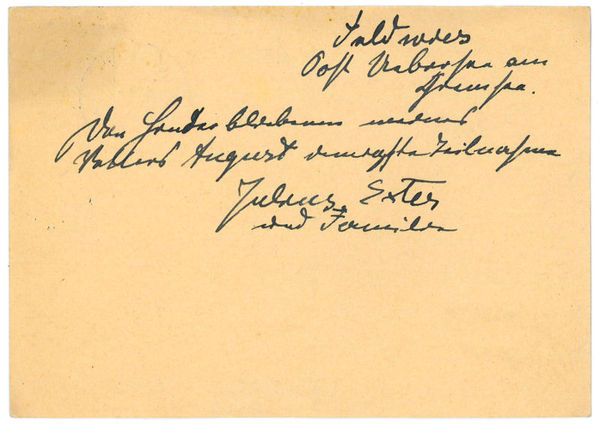 Feldwies
Post Uebersee am
Chiemsee.
Den Hinterbliebenen meines
Vetters August innigste Teilnahme
Julius Exter
und Familie